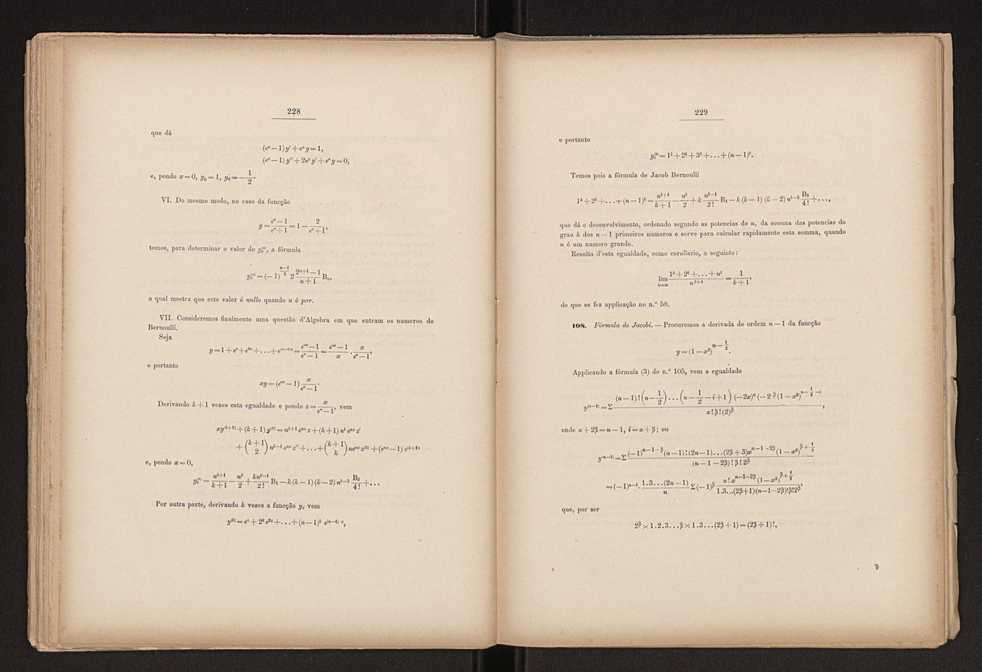 228
que dá
(eˣ — 1) y' + eˣ y = 1,
(eˣ — 1) y'' + 2eˣ y' + eˣ y = 0,
e, pondo x = 0, y₀ = 1, y'₀ = — 1/2.
VI. Do mesmo modo, no caso da funcção
y = (eˣ — 1)/(eˣ + 1) = 1 — 2/(eˣ + 1),
temos, para determinar o valor de y₀⁽ⁿ⁾, a fórmula
y₀⁽ⁿ⁾ = (— 1)^((n—1)/2) 2 (2ⁿ⁺¹ — 1)/(n + 1) Bₙ,
a qual mostra que este valor é nullo quando n é par.
VII. Consideremos finalmente uma questão d'Algebra em que entram os numeros de
Bernoulli.
Seja
y = 1 + eˣ + e²ˣ + . . . + e⁽ⁿ⁻¹⁾ˣ = (eⁿˣ — 1)/(eˣ — 1) = (eⁿˣ — 1)/x · x/(eˣ — 1),
e portanto
xy = (eⁿˣ — 1) x/(eˣ — 1).
Derivando k + 1 vezes esta egualdade e pondo z = x/(eˣ — 1), vem
xy⁽ᵏ⁺¹⁾ + (k + 1) y⁽ᵏ⁾ = nᵏ⁺¹ eⁿˣ z + (k + 1) nᵏ eⁿˣ z'
+ (k + 1 / 2) nᵏ⁻¹ eⁿˣ z'' + . . . + (k + 1 / k) neⁿˣ z⁽ᵏ⁾ + (eⁿˣ — 1) z⁽ᵏ⁺¹⁾
e, pondo x = 0,
y₀⁽ᵏ⁾ = nᵏ⁺¹/(k + 1) — nᵏ/2 + knᵏ⁻¹/2! B₁ — k (k — 1) (k — 2) nᵏ⁻³ B₃/4! + . . .
Por outra parte, derivando k vezes a funcção y, vem
y⁽ᵏ⁾ = eˣ + 2ᵏ e²ˣ + . . . + (n — 1)ᵏ e⁽ⁿ⁻¹⁾ˣ,
229
e portanto
y₀⁽ᵏ⁾ = 1ᵏ + 2ᵏ + 3ᵏ + . . . + (n — 1)ᵏ.
Temos pois a fórmula de Jacob Bernoulli
1ᵏ + 2ᵏ + . . . + (n — 1)ᵏ = nᵏ⁺¹/(k + 1) — nᵏ/2 + k nᵏ⁻¹/2! B₁ — k (k — 1) (k — 2) nᵏ⁻³ B₃/4! + . . . ,
que dá o desenvolvimento, ordenado segundo as potencias de n, da somma das potencias do
grau k dos n — 1 primeiros numeros e serve para calcular rapidamente esta somma, quando
n é um numero grande.
Resulta d'esta egualdade, como corollario, a seguinte:
lim n=∞ (1ᵏ + 2ᵏ + . . . + nᵏ)/nᵏ⁺¹ = 1/(k + 1),
de que se fez applicação no n.º 58.
108. Fórmula de Jacobi. — Procuremos a derivada de ordem n — 1 da funcção
y = (1 — x²)^(n — 1/2).
Applicando a fórmula (3) do n.º 105, vem a egualdade
y⁽ⁿ⁻¹⁾ = Σ (n — 1)! (n — 1/2) . . . (n — 1/2 — i + 1) (— 2x)^α (— 2)^β (1 — x²)^(n — 1/2 — i) / α! β! (2)^β,
onde α + 2β = n — 1, i = α + β; ou
y⁽ⁿ⁻¹⁾ = Σ (— 1)^(n—1—β) (n — 1)! (2n — 1) . . . (2β + 3) x^(n—1—2β) (1 — x²)^(β + 1/2) / (n — 1 — 2β)! β! 2^β
= (— 1)ⁿ⁻¹ · 1.3 . . . (2n — 1)/n Σ (— 1)^β n! x^(n—1—2β) (1 — x²)^(β + 1/2) / 1.3 . . . (2β + 1) (n — 1 — 2β)! β! 2^β,
que, por ser
2^β × 1.2.3 . . . β × 1.3 . . . (2β + 1) = (2β + 1)!,